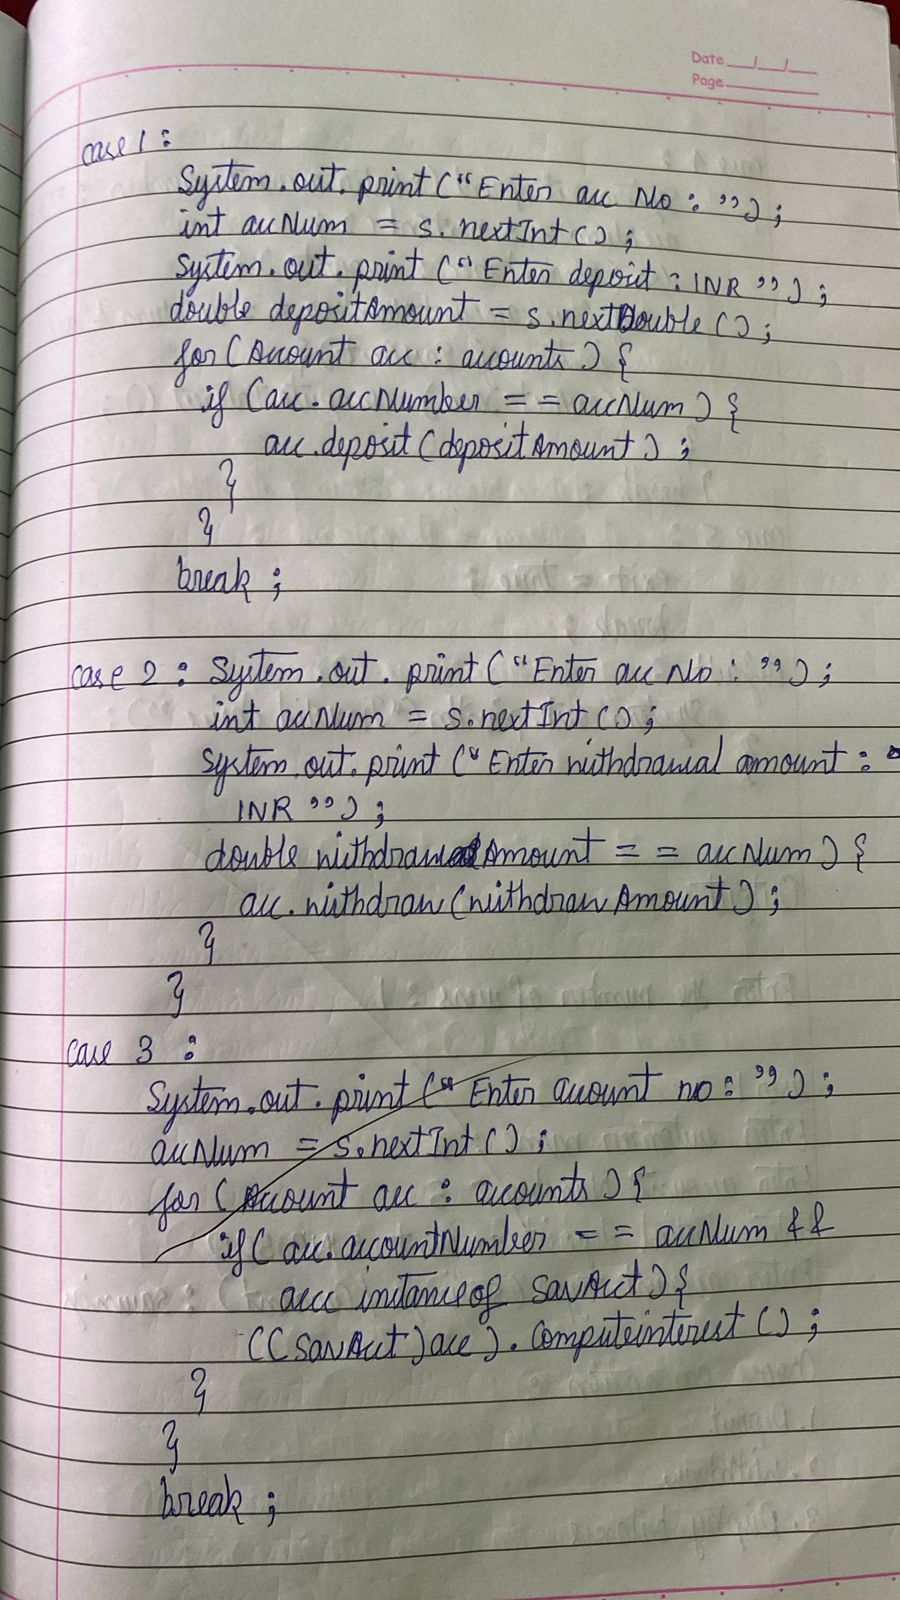 Date __/__/__
Page
case 1 :
System.out.print("Enter acc No : ");
int accNum = s.nextInt();
System.out.print("Enter deposit : INR ");
double depositAmount = s.nextDouble();
for(Account acc : accounts) {
if (acc.accNumber == accNum) {
acc.deposit(depositAmount);
}
}
break ;
case 2 : System.out.print("Enter acc No : ");
int accNum = s.nextInt();
System.out.print("Enter withdrawal amount :
INR ");
double withdrawalAmount == accNum) {
acc.withdraw(withdrawAmount);
}
}
case 3 :
System.out.print("Enter account no : ");
accNum = s.nextInt();
for (Account acc : accounts) {
if( acc.accountNumber == accNum &&
acc instanceof SavAcct) {
((SavAcct)acc).computeinterest();
}
}
break ;